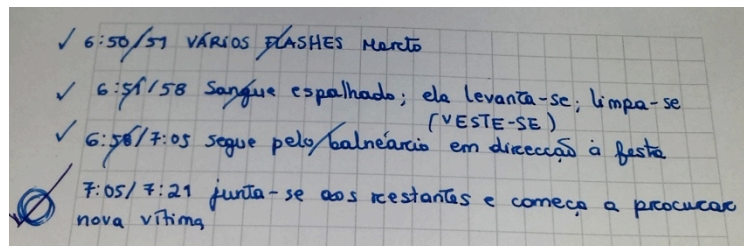 ✓ 6:50/51 VÁRIOS FLASHES Marcto
✓ 6:51/58 Sangue espalhado; ela levanta-se; limpa-se
(VESTE-SE)
✓ 6:58/7:05 segue pelo balneárcio em direcção à festa
7:05/7:21 junta-se aos restantes e começa a procurar
nova vítima